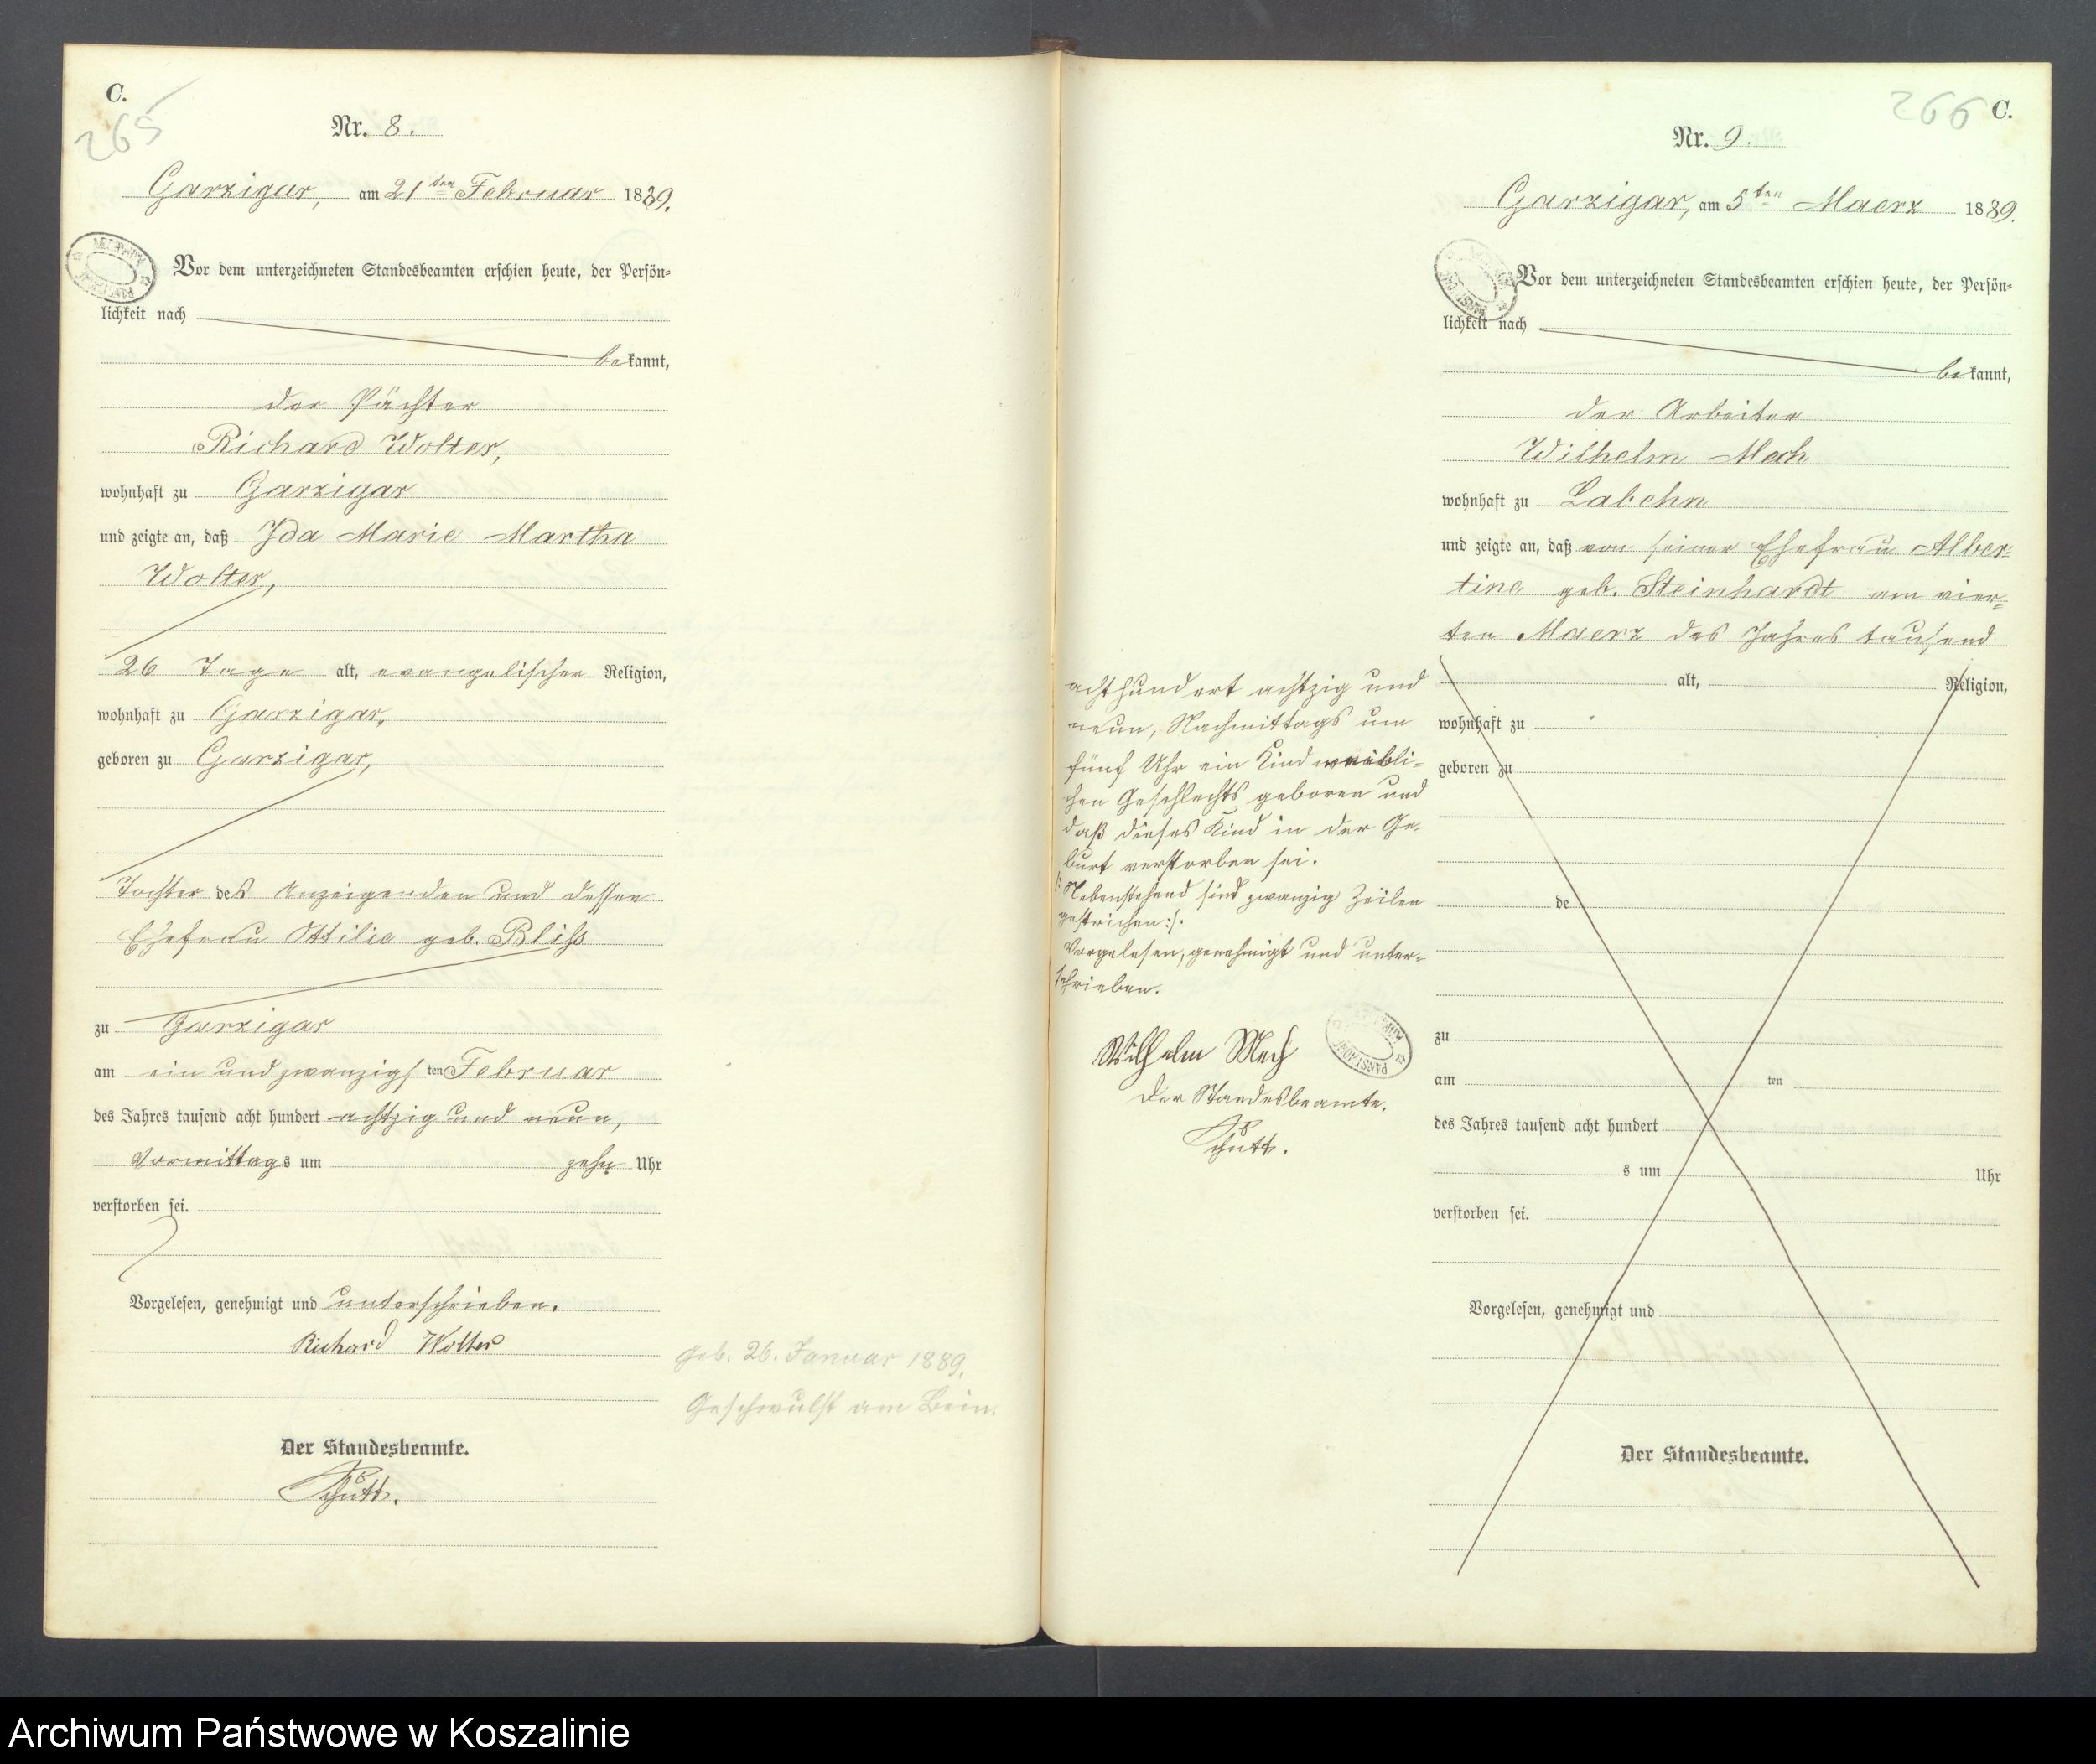 C.
265
Nr. 8.
Garzigar, am 21ten Februar 1889.
Vor dem unterzeichneten Standesbeamten erschien heute, der Persön-
lichkeit nach
bekannt,
der Pächter
Richard Wolter,
wohnhaft zu Garzigar
und zeigte an, daß Ida Marie Martha
Wolter,
26 Tage alt, evangelischer Religion,
wohnhaft zu Garzigar,
geboren zu Garzigar,
Tochter des Anzeigenden und dessen
Ehefrau Ottilie geb. Bliß
zu Garzigar
am ein und zwanzigsten Februar
des Jahres tausend acht hundert achtzig und neun,
Vormittags um zehn Uhr
verstorben sei.
Vorgelesen, genehmigt und unterschrieben.
Richard Wolter
Der Standesbeamte.
Schütt.
geb. 26. Januar 1889.
Geschwulst am Bein.
266
C.
Nr. 9.
Garzigar, am 5ten Maerz 1889.
Vor dem unterzeichneten Standesbeamten erschien heute, der Persön-
lichkeit nach
bekannt,
der Arbeiter
Wilhelm Mech
wohnhaft zu Labehn
und zeigte an, daß von seiner Ehefrau Alber-
tine geb. Steinhardt am vier-
ten Maerz des Jahres tausend
achthundert achtzig und
neun, Nachmittags um
fünf Uhr ein Kind weibli-
chen Geschlechts geboren und
daß dieses Kind in der Ge-
burt verstorben sei.
/: Nebenstehend sind zwanzig Zeilen
gestrichen :/.
Vorgelesen, genehmigt und unter-
schrieben.
Wilhelm Mech
Der Standesbeamte.
Schütt.
alt, Religion,
wohnhaft zu
geboren zu
de
zu
am ten
des Jahres tausend acht hundert
s um Uhr
verstorben sei.
Vorgelesen, genehmigt und
Der Standesbeamte.
Archiwum Państwowe w Koszalinie